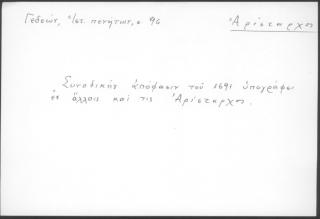 Γεδεών, Ἱστ. πενήτων, σ 96
Ἀρίσταρχος
Συνοδικὴν ἀπόφασιν τοῦ 1691 ὑπογράφει
ἐν ἄλλοις καί τις Ἀρίσταρχος.